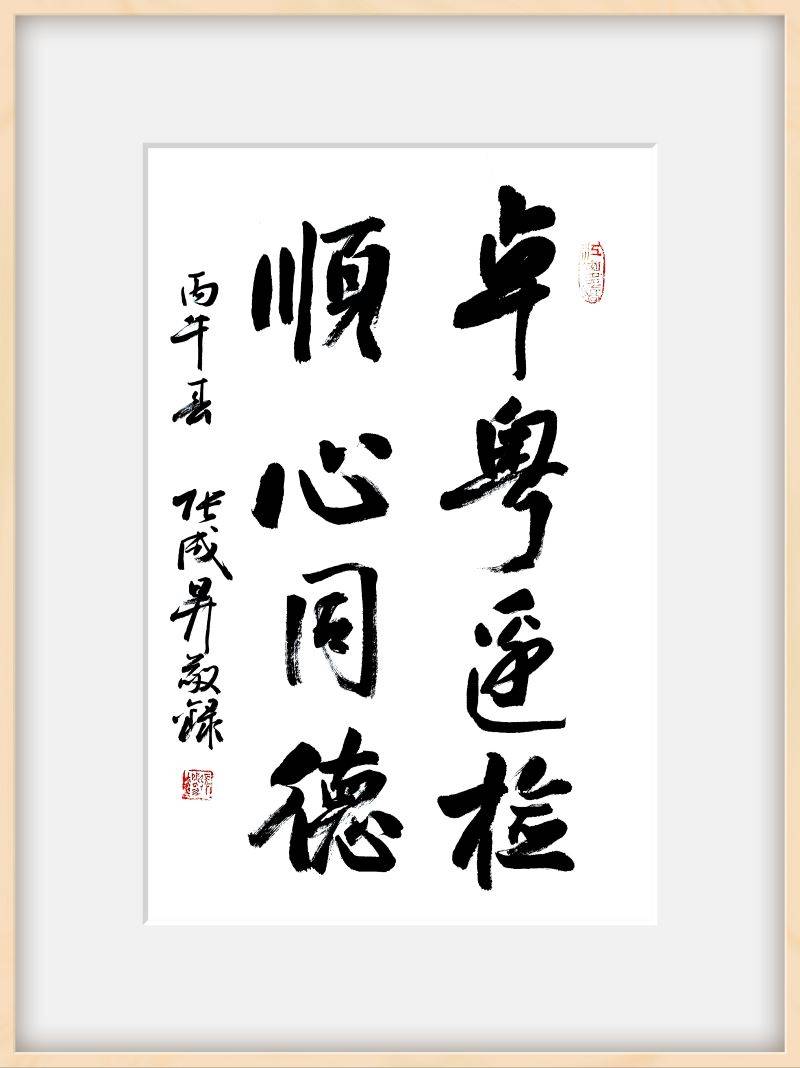 卓粤遥检
順心同德
丙午春 张成昇敬録